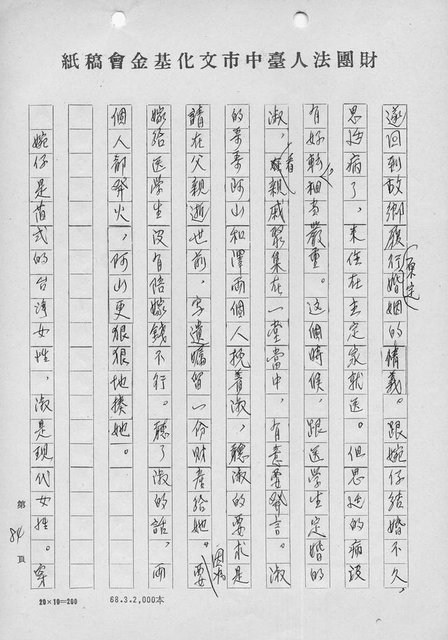 財團法人臺中市文化基金會稿紙
遂回到故鄉履行原定婚姻的情義。跟婉仔結婚不久,
思廷病了,來住在志定家就醫。但思廷的病沒
有好轉,相當嚴重。這個時候,跟醫學生定婚的
淑,看親戚聚集在一堂當中,有意要發言。淑
的哥哥阿山和澤兩個人挽着淑,聽淑的要求是
請在父親逝世前,寫遺囑留一份財產給她。因為要
嫁給醫學生沒有陪嫁錢不行。聽了淑的話,兩
個人都發火,阿山更狠狠地揍她。
婉仔是舊式的台灣女性,淑是現代女性。穿
第 84 頁
20×10=200
68.3.2,000本